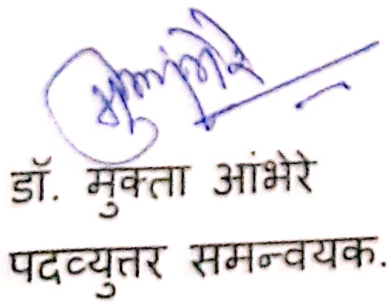 डॉ. मुक्ता आंभेरे
पदव्युत्तर समन्वयक.